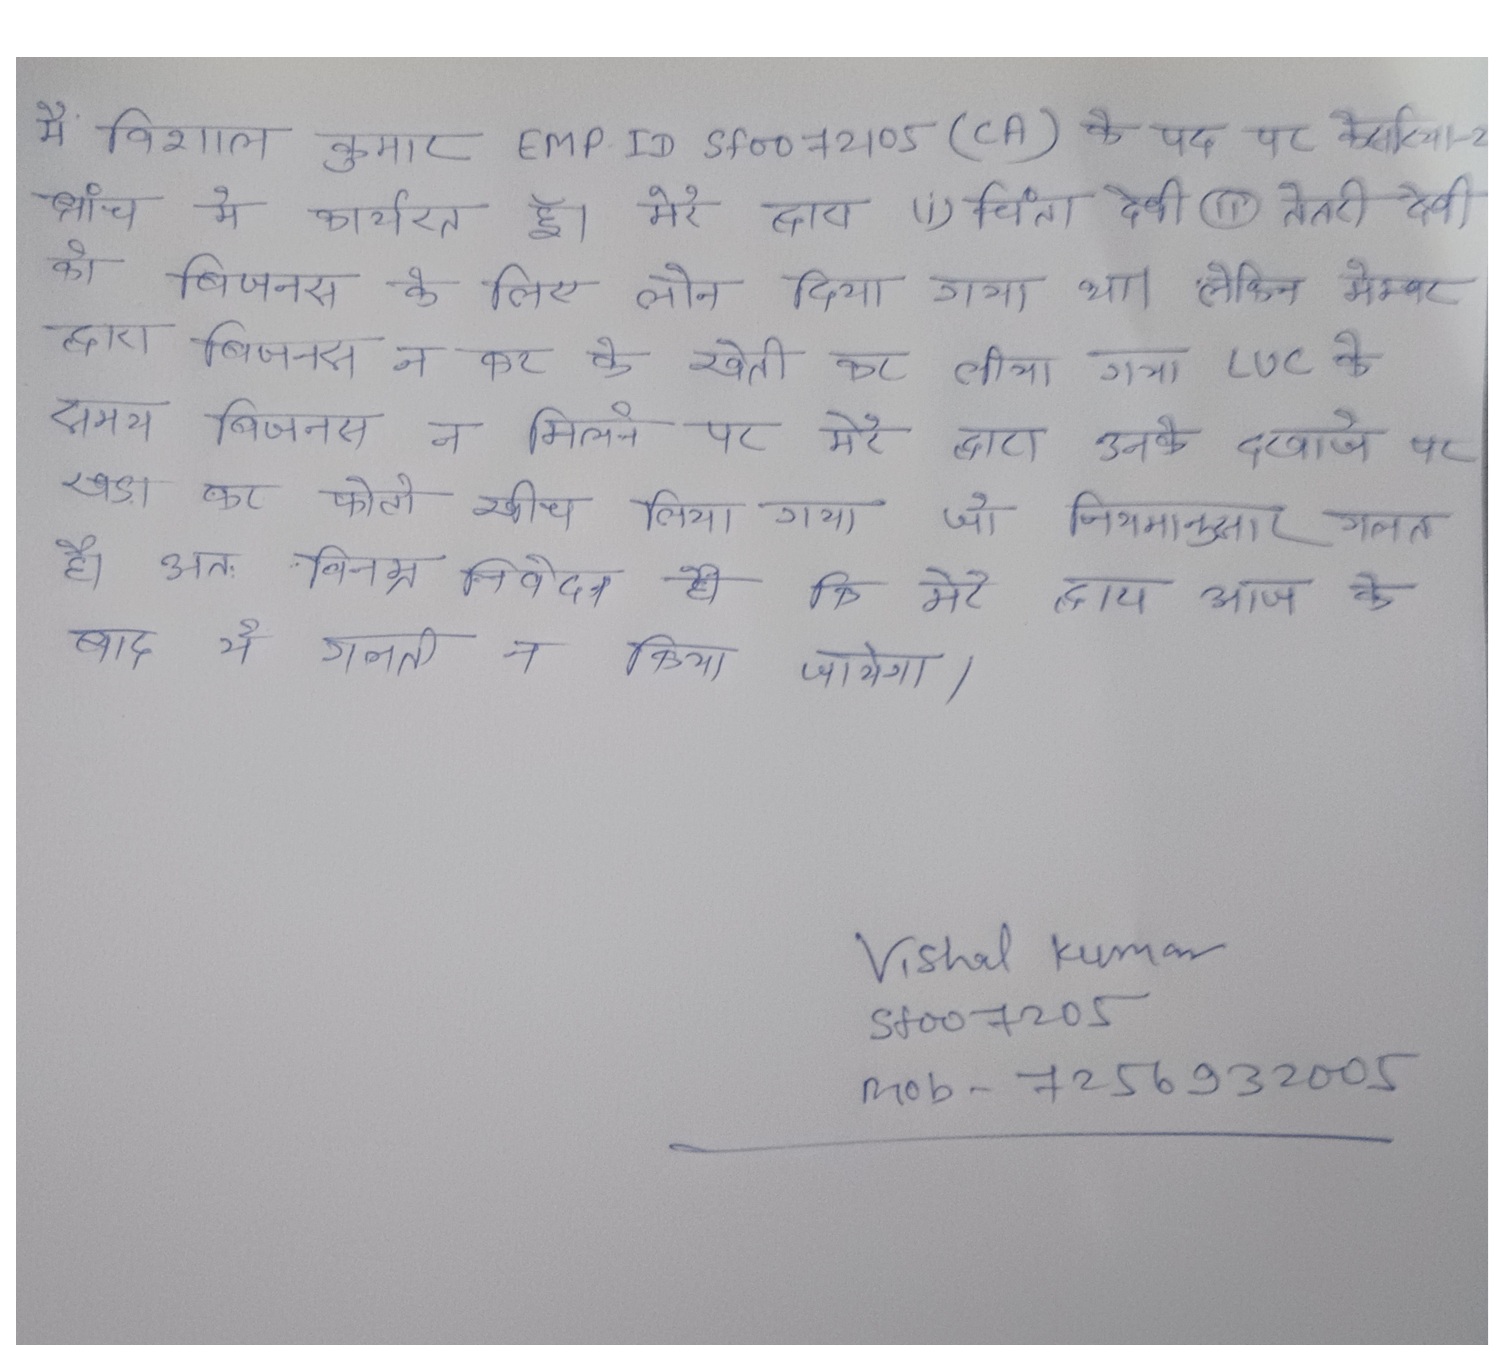 मैं विशाल कुमार EMP ID Sf0072105 (CA) के पद पर केसरिया-2
ब्रांच मे कार्यरत हूँ। मेरे द्वारा (i) चिंता देवी (ii) तेतरी देवी
को बिजनस के लिए लोन दिया गया था। लेकिन मेम्बर
द्वारा बिजनस न कर के खेती कर लीया गया LUC के
समय बिजनस न मिलने पर मेरे द्वारा उनके दरवाजे पर
खड़ा कर फोटो खीच लिया गया जो नियमानुसार गलत
है। अतः विनम्र निवेदन है कि मेरे द्वारा आज के
बाद ये गलती न किया जायेगा।
Vishal Kumar
Sf007205
Mob- 7256932005